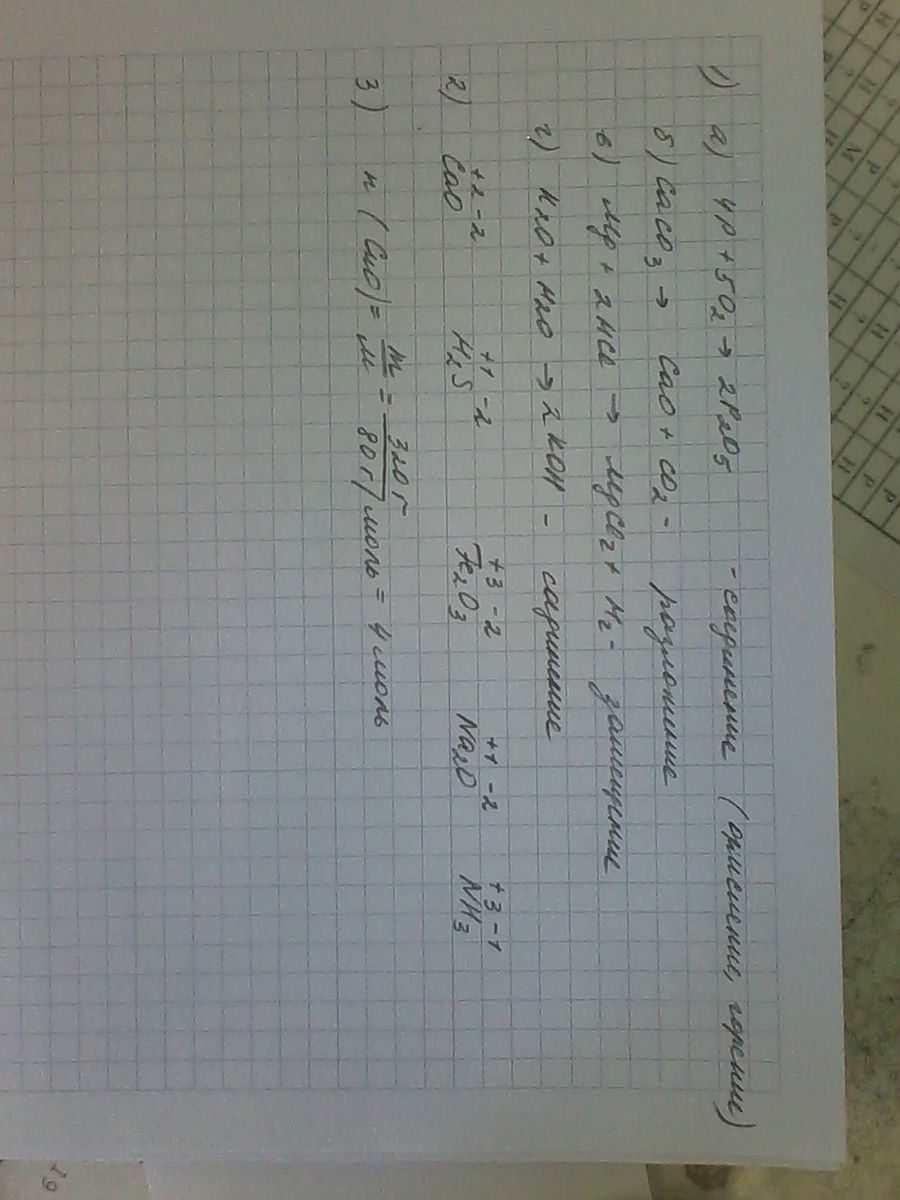 1) а) 4P + 5O2 → 2P2O5 - соединение (окисление, горение)
б) CaCO3 → CaO + CO2 - разложение
в) Mg + 2HCl → MgCl2 + H2 - замещение
г) K2O + H2O → 2KOH - соединение
+2 -2 +1 -2 +3 -2 +1 -2 +3 -1
2) CaO H2S Fe2O3 Na2O NH3
3) n (CuO) = m/M = 320 г/80 г/моль = 4 моль
19